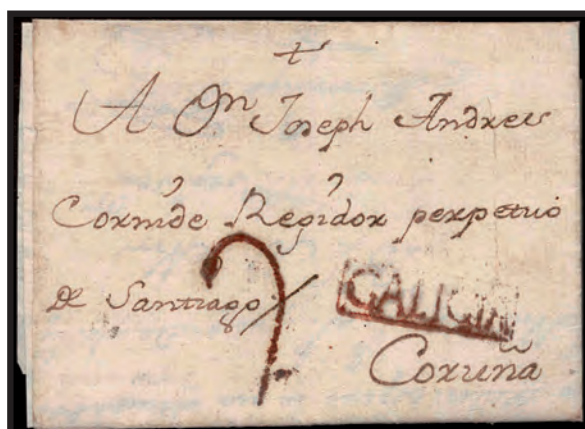 A Dn Joseph Andres
Cornide Regidor perpetuo
de Santiago
7
GALICIA
Coruña